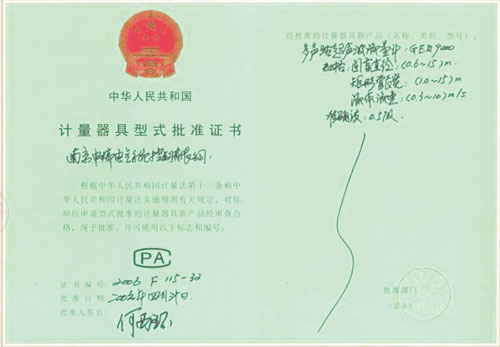 中华人民共和国
计量器具型式批准证书
南京申瑞电气系统控制有限公司
根据中华人民共和国计量法第十三条和中
华人民共和国计量法实施细则有关规定，对你
单位申请型式批准的计量器具新产品经审查合
格，现予批准，并可使用以下标志和编号。
PA
证书编号：2006 F 115-32
批准日期：
批准人签名：
经批准的计量器具新产品（名称、类别、型号）：
多声路超声波流量计：GER9000
圆管直径 (0.6~15)m
矩形管长宽 (1.0~15)m
液体流速 (0.3~10)m/s
准确度：0.5级
批准部门